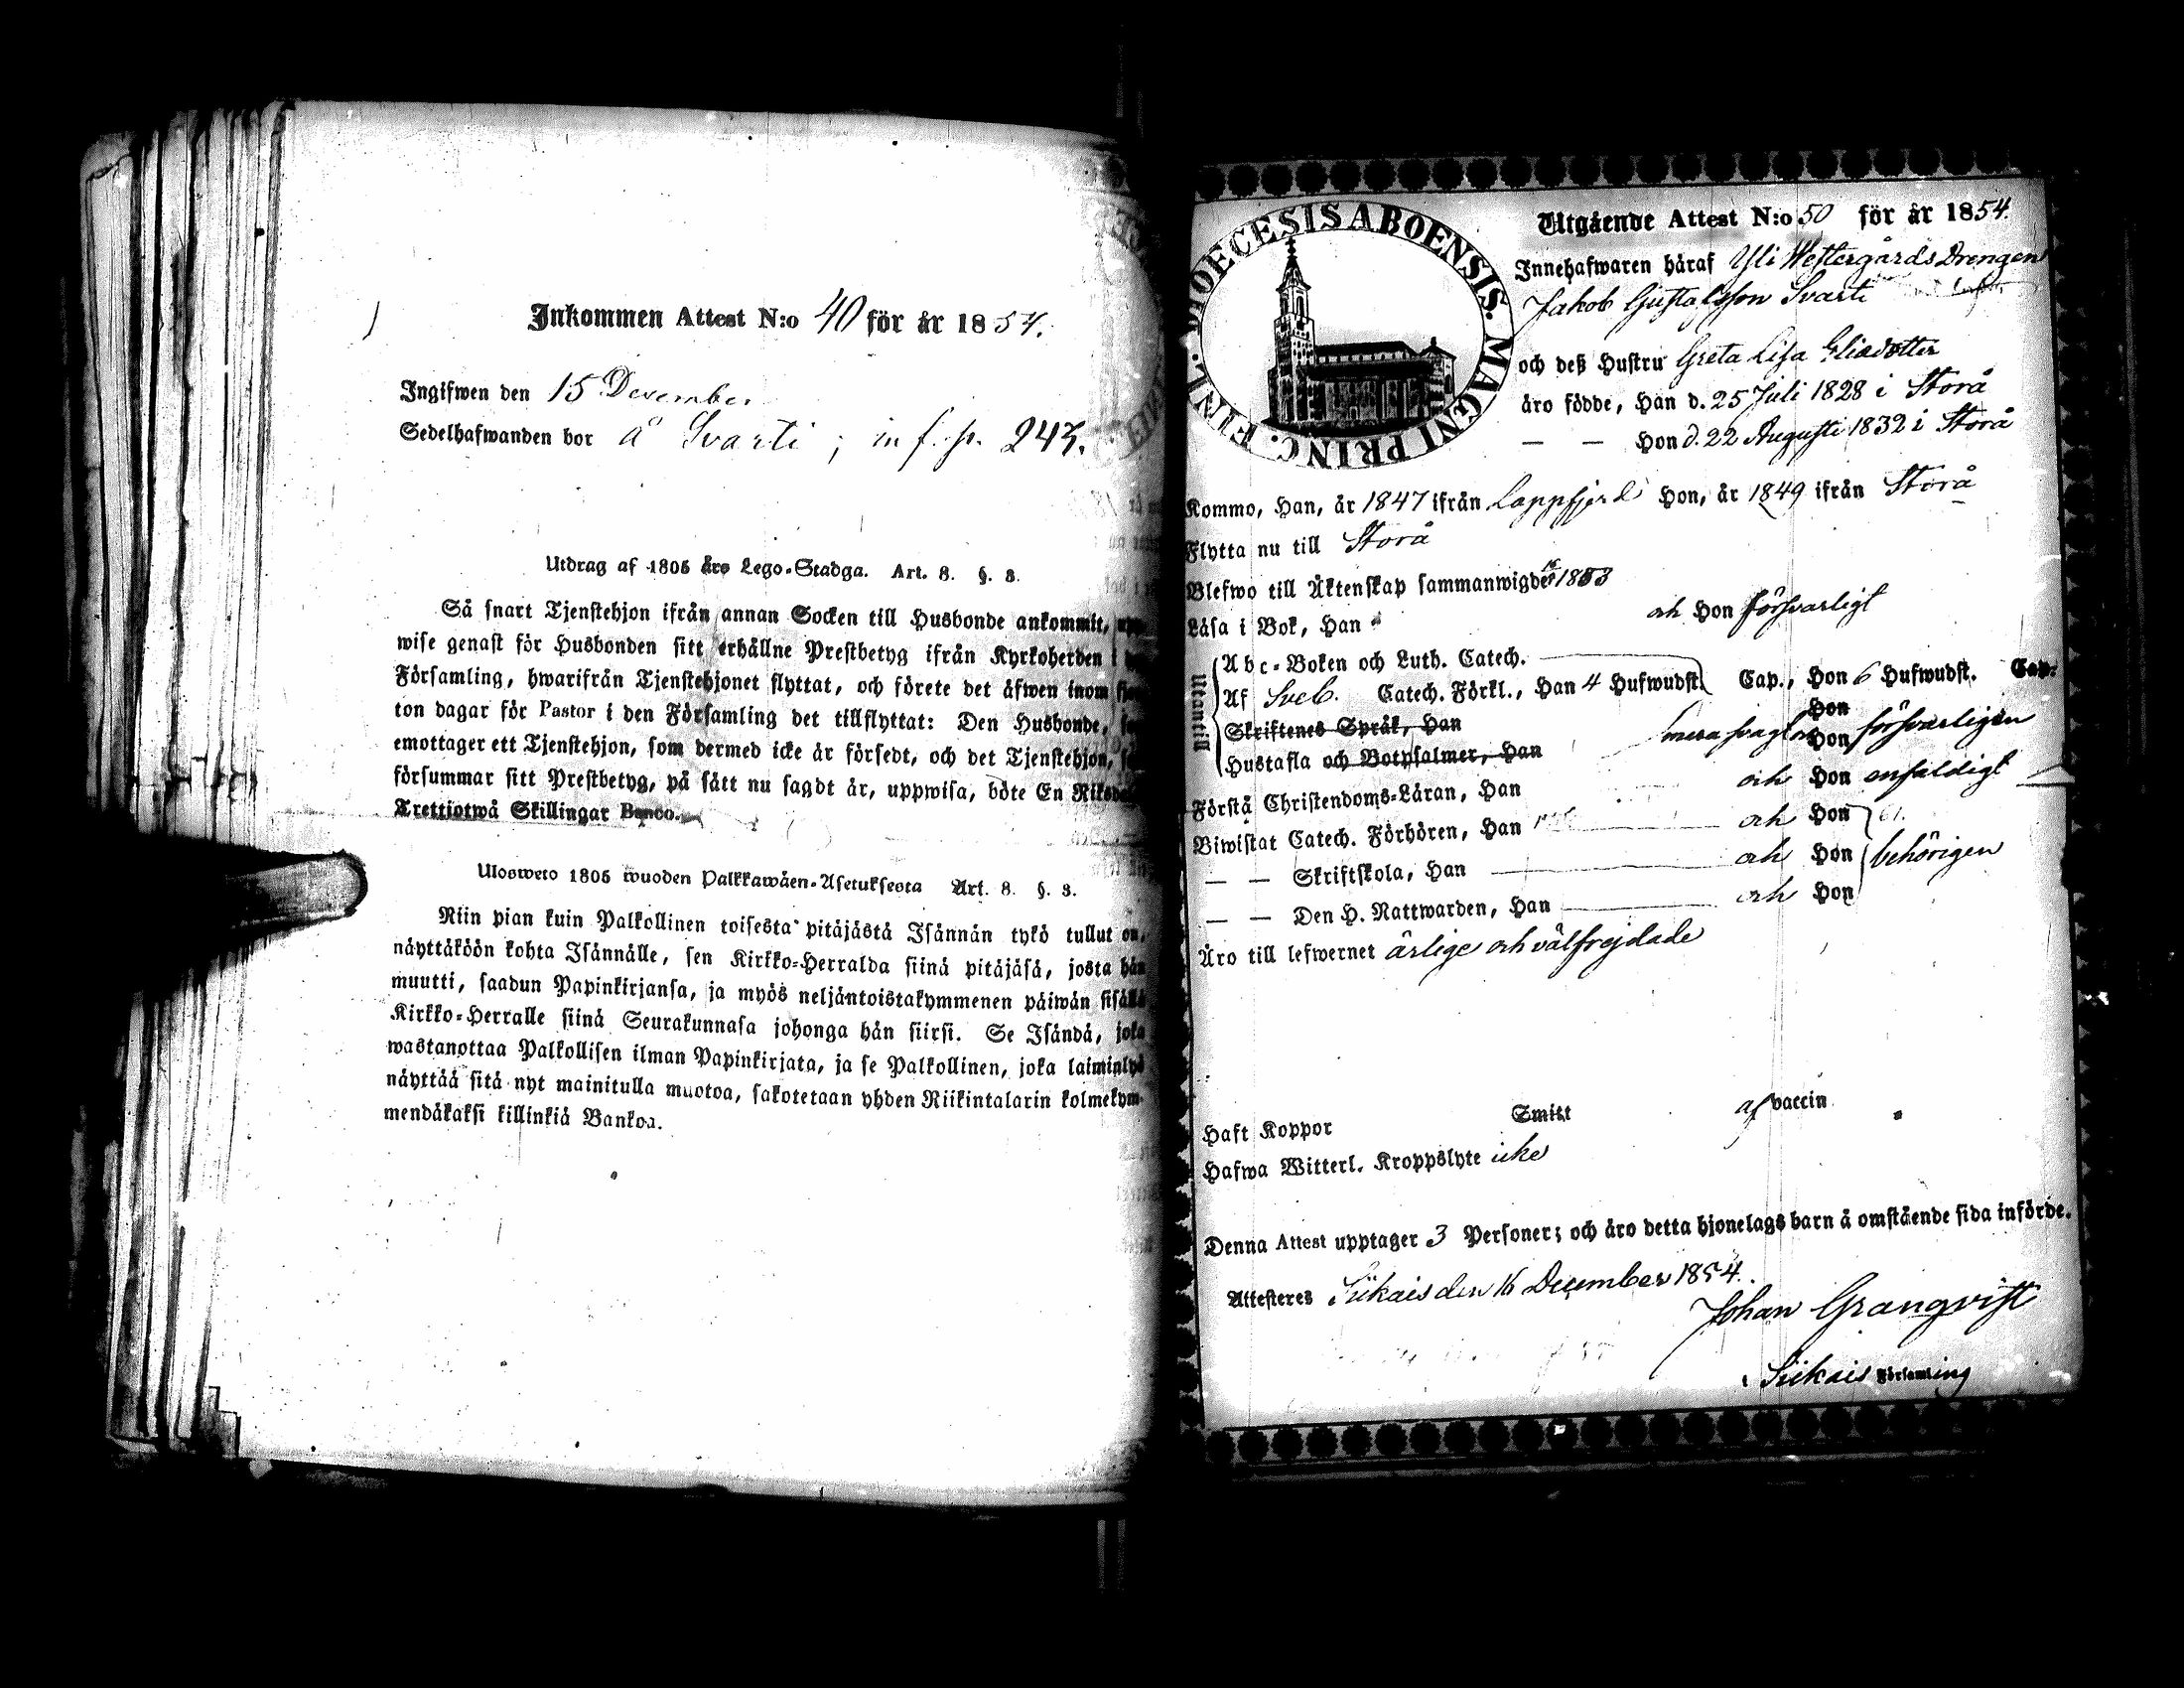 Inkommen Attest N:o 40 för år 1854.
Ingifwen den 15 December
Sedelhafwanden bor å Svarti; in f. p. 243.
Utdrag af 1805 års Lego-Stadga. Art. 8. §. 8.
Så snart Tjenstehjon ifrån annan Socken till Husbonde ankommit,
wise genast för Husbonden sitt erhållne Prestbetyg ifrån Kyrkoherden i
Församling, hwarifrån Tjenstehjonet flyttat, och förete det äfwen inom
ton dagar för Pastor i den Församling det tillflyttat: Den Husbonde,
emottager ett Tjenstehjon, som dermed icke är försedt, och det Tjenstehjon,
försummar sitt Prestbetyg, på sätt nu sagdt är, uppwisa, böte En
Trettiotwå Skillingar Banco.
Ulosweto 1805 wuoden Palkkawäen-Asetuksesta Art. 8. §. 8.
Niin pian kuin Palkollinen toisesta pitäjästä Isännän tykö tullut on,
näyttäköön kohta Isännälle, sen Kirkko-Herralda siinä pitäjäsä, josta hän
muutti, saadun Papinkirjansa, ja myös neljäntoistakymmenen päiwän sisällä
Kirkko-Herralle siinä Seurakunnasa johonga hän siirsi. Se Isändä, joka
wastanottaa Palkollisen ilman Papinkirjata, ja se Palkollinen, joka laiminlyö
näyttää sitä nyt mainitulla muotoa, sakotetaan yhden Riikintalarin kolmekym-
mendäkaksi killinkiä Bankoa.
DIOECESIS ABOENSIS. MAGNI PRINC. FINL.
Utgående Attest N:o 50 för år 1854.
Innehafwaren häraf Yli Westergårds Drengen
Jakob Gustafsson Svarti
och deß Hustru Greta Lisa Eliædotter
äro födde, Han d. 25 Juli 1828 i Storå
— — Hon d. 22 Augusti 1832 i Storå
Kommo, Han, år 1847 ifrån Lappfjerd Hon, år 1849 ifrån Storå
Flytta nu till Storå
Blefwo till Äktenskap sammanwigde 1853
Läsa i Bok, Han och Hon försvarligt
Utantill
Abc-Boken och Luth. Catech.
Af Sveb. Catech. Förkl., Han 4 Hufwudst. Cap., Hon 6 Hufwudst. Cap.
Skriftenes Språk, Han Hon
Hustafla och Botpsalmer, Han Hon försvarligen
Förstå Christendoms-Läran, Han och Hon enfaldigt
Biwistat Catech. Förhören, Han och Hon
— — Skriftskola, Han och Hon behörigen
— — Den H. Nattwarden, Han och Hon
Äro till lefwernet ärlige och välfrejdade
Haft Koppor Smitt af vaccin
Hafwa Witterl. Kroppslyte icke
Denna Attest upptager 3 Personer; och äro detta hjonelags barn å omstående sida införde.
Attesteres Siikais den 16 December 1854.
Johan Granqvist
i Siikais Församling